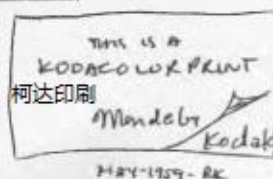 THIS IS A
KODACOLOR PRINT
柯达印刷
Made by
Kodak
MAY-1959-RK